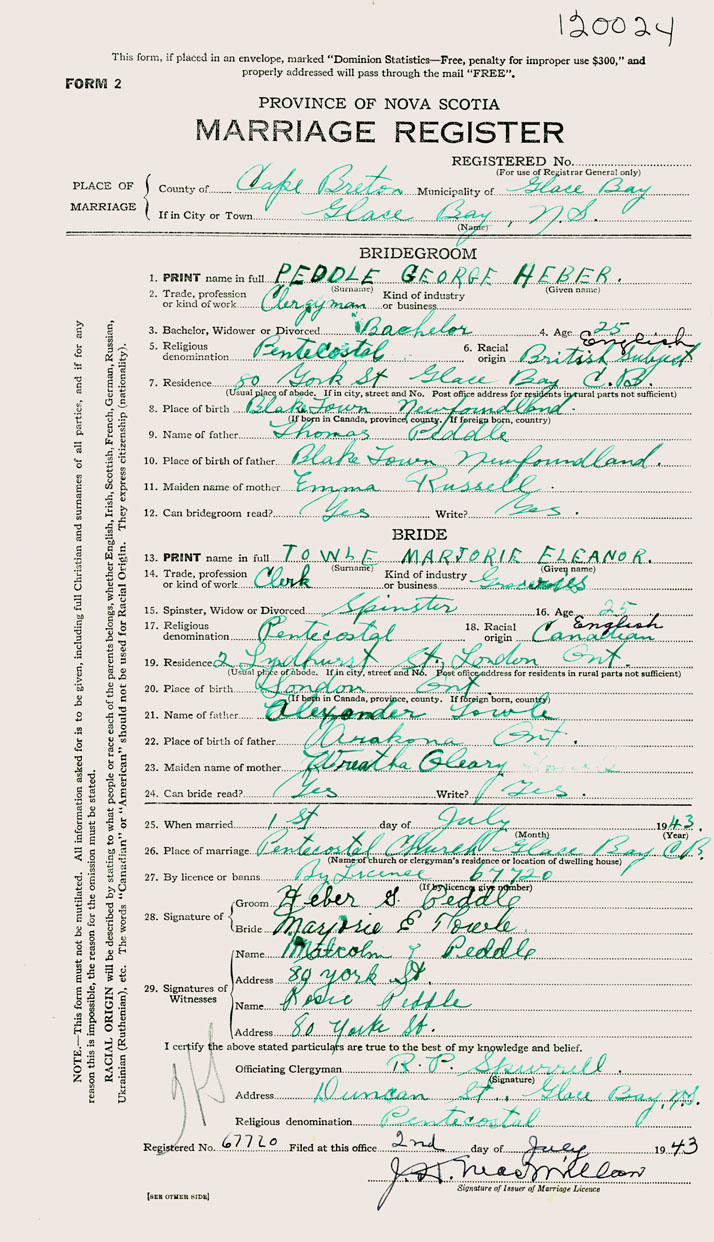 120024
This form, if placed in an envelope, marked "Dominion Statistics—Free, penalty for improper use $300," and
properly addressed will pass through the mail "FREE".
FORM 2
PROVINCE OF NOVA SCOTIA
MARRIAGE REGISTER
REGISTERED No.
(For use of Registrar General only)
PLACE OF MARRIAGE
County of Cape Breton Municipality of Glace Bay
If in City or Town Glace Bay, N.S.
(Name)
BRIDEGROOM
1. PRINT name in full PEDDLE GEORGE HEBER.
(Surname) (Given name)
2. Trade, profession or kind of work Clergyman Kind of industry or business
3. Bachelor, Widower or Divorced Bachelor 4. Age 25
5. Religious denomination Pentecostal 6. Racial origin English British Subject
7. Residence 80 York St Glace Bay C.B.
(Usual place of abode. If in city, street and No. Post office address for residents in rural parts not sufficient)
8. Place of birth Blake Town Newfoundland.
(If born in Canada, province, county. If foreign born, country)
9. Name of father Thomas Peddle
10. Place of birth of father Blake Town Newfoundland.
11. Maiden name of mother Emma Russell.
12. Can bridegroom read? Yes Write? Yes.
BRIDE
13. PRINT name in full TOWLE MARJORIE ELEANOR.
(Surname) (Given name)
14. Trade, profession or kind of work Clerk Kind of industry or business
15. Spinster, Widow or Divorced Spinster 16. Age 25
17. Religious denomination Pentecostal 18. Racial origin English Canadian
19. Residence 2 Lyndhurst St, London Ont.
(Usual place of abode. If in city, street and No. Post office address for residents in rural parts not sufficient)
20. Place of birth London Ont.
(If born in Canada, province, county. If foreign born, country)
21. Name of father Alexander Towle
22. Place of birth of father Arakona Ont.
23. Maiden name of mother Wreatha Cleary
24. Can bride read? Yes Write? Yes.
25. When married 1 St day of July 1943.
(Month) (Year)
26. Place of marriage Pentecostal Church Glace Bay C.B.
(Name of church or clergyman's residence or location of dwelling house)
27. By licence or banns By License 67720
(If by licence give number)
28. Signature of
Groom Heber G. Peddle
Bride Marjorie E Towle
29. Signatures of Witnesses
Name Malcolm Peddle
Address 80 york St.
Name Rosie Peddle
Address 80 Yorke St.
I certify the above stated particulars are true to the best of my knowledge and belief.
Officiating Clergyman R. P. Spurrell.
(Signature)
Address Duncan St., Glace Bay, N.S.
Religious denomination Pentecostal
Registered No. 67720 Filed at this office 2nd day of July 1943
J. H. MacMillan
Signature of Issuer of Marriage Licence
[SEE OTHER SIDE]
NOTE.—This form must not be mutilated. All information asked for is to be given, including full Christian and surnames of all parties, and if for any
reason this is impossible, the reason for the omission must be stated.
RACIAL ORIGIN will be described by stating to what people or race each of the parents belongs, whether English, Irish, Scottish, French, German, Russian,
Ukrainian (Ruthenian), etc. The words "Canadian" or "American" should not be used for Racial Origin. They express citizenship (nationality).